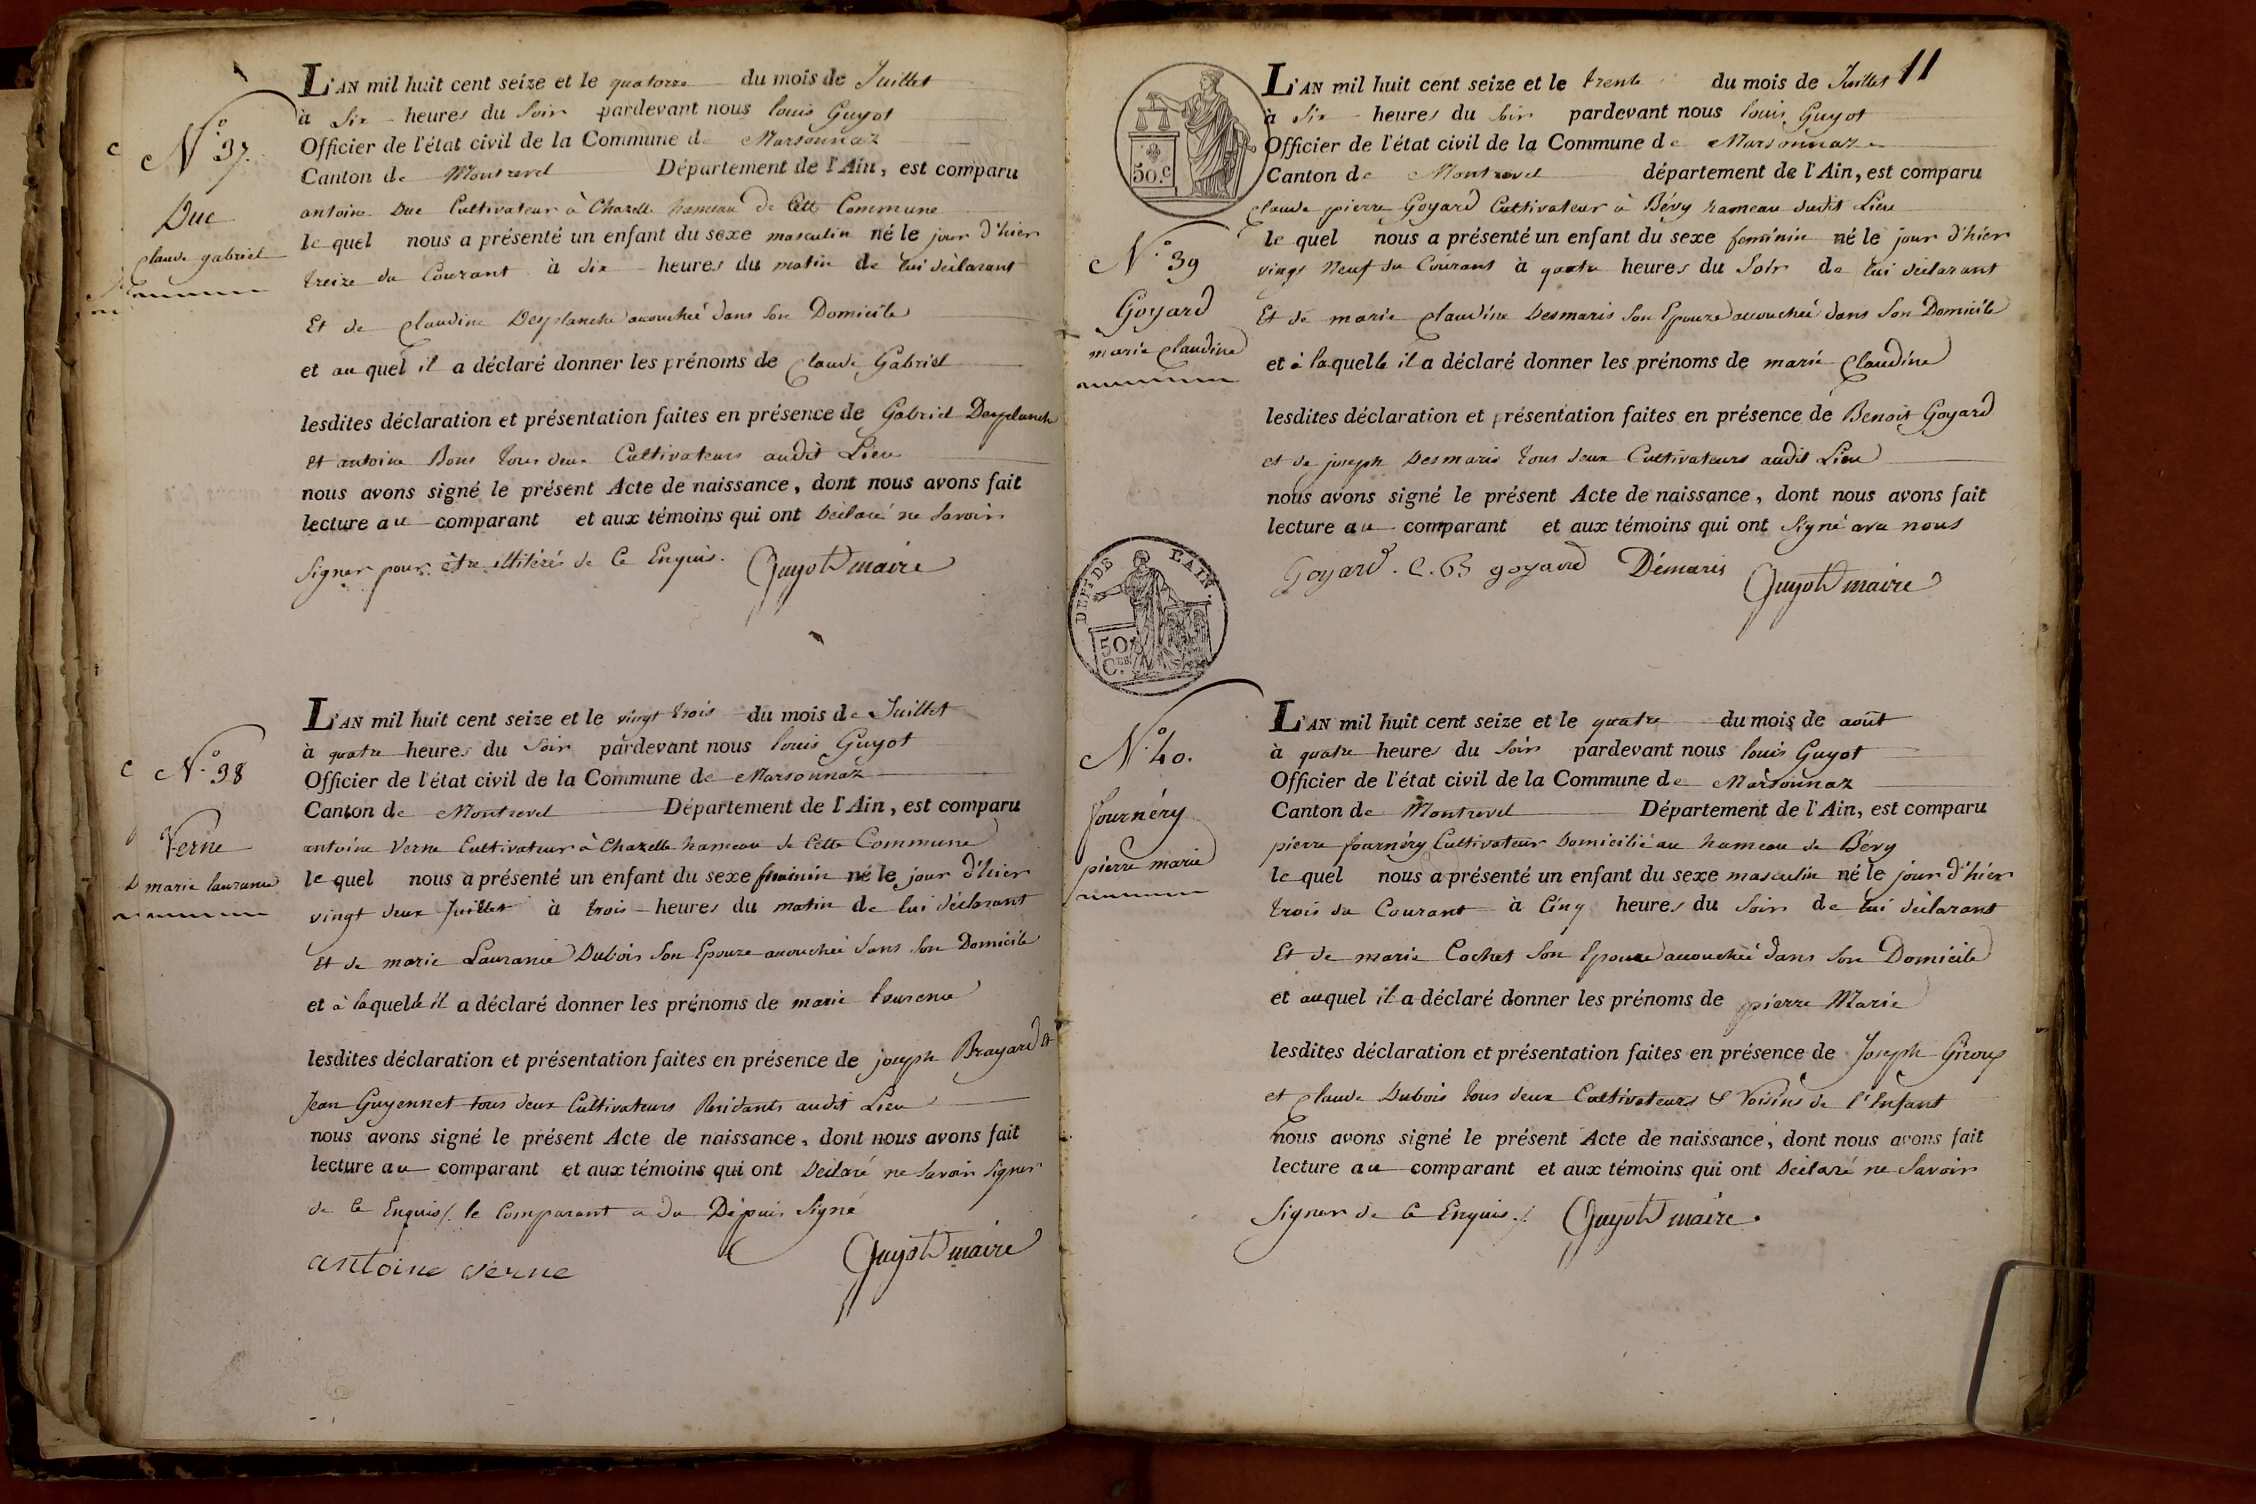 N.o 37.
Duc
claude gabriel
L'AN mil huit cent seize et le quatorze du mois de Juillet
à Six heures du Soir pardevant nous louis Guyot
Officier de l'état civil de la Commune de Marsonnaz
Canton de Montrevel Département de l'Ain, est comparu
antoine Duc Cultivateur à Chazelle hameau de Cette Commune
le quel nous a présenté un enfant du sexe masculin né le jour d'hier
treize du Courant à dix heures du matin de lui déclarant
Et de claudine Desplanche accouchée dans son Domicile
et au quel il a déclaré donner les prénoms de Claude Gabriel
lesdites déclaration et présentation faites en présence de Gabriel Desplanche
et antoine Bons tous deux Cultivateurs audit Lieu
nous avons signé le présent Acte de naissance, dont nous avons fait
lecture au comparant et aux témoins qui ont Déclaré ne Savoir
Signer pour être illitérés de Ce Enquis. Guyot maire
N.o 38
Verne
marie lauranne
L'AN mil huit cent seize et le vingt trois du mois de Juillet
à quatre heures du Soir pardevant nous louis Guyot
Officier de l'état civil de la Commune de Marsonnaz
Canton de Montrevel Département de l'Ain, est comparu
antoine Verne Cultivateur à Chazelle hameau de Cette Commune
le quel nous a présenté un enfant du sexe féminin né le jour d'hier
vingt deux Juillet à trois heures du matin de lui déclarant
Et de marie Dubois Son Epouze accouchée dans son Domicile
et à laquelle il a déclaré donner les prénoms de marie
lesdites déclaration et présentation faites en présence de joseph Brayard et
Jean Guyennet tous deux Cultivateurs Residants audit Lieu
nous avons signé le présent Acte de naissance, dont nous avons fait
lecture au comparant et aux témoins qui ont Déclaré ne Savoir Signer
de Ce Enquis /. le Comparant a du Depuis Signé
antoine verne Guyot maire
11
50.c
N.o 39
Goyard
marie claudine
L'AN mil huit cent seize et le trente du mois de Juillet
à Six heures du Soir pardevant nous louis Guyot
Officier de l'état civil de la Commune de Marsonnaz
Canton de Montrevel département de l'Ain, est comparu
claude pierre Goyard Cultivateur à Bévy hameau dudit Lieu
le quel nous a présenté un enfant du sexe feminin né le jour d'hier
vingt Neuf du Courant à quatre heures du Soir de lui déclarant
Et de marie claudine Desmaris Son Epouze accouchée dans Son Domicile
et à laquelle il a déclaré donner les prénoms de marie Claudine
lesdites déclaration et présentation faites en présence de Benoit Goyard
et de joseph Desmaris tous deux Cultivateurs audit Lieu
nous avons signé le présent Acte de naissance, dont nous avons fait
lecture au comparant et aux témoins qui ont Signé avec nous
Goyard. goyard Démaris
Guyot maire
DEPT. DE L'AIN.
50
Ces
N.o 40.
fournéry
pierre marie
L'AN mil huit cent seize et le quatre du mois de août
à quatre heures du Soir pardevant nous louis Guyot
Officier de l'état civil de la Commune de Marsonnaz
Canton de Montrevel Département de l'Ain, est comparu
pierre fournéry Cultivateur Domicilié au hameau de Bévy
le quel nous a présenté un enfant du sexe masculin né le jour d'hier
trois du Courant à Cinq heures du Soir de lui déclarant
Et de marie Cochet Son Epouze accouchée dans Son Domicile
et auquel il a déclaré donner les prénoms de pierre Marie
lesdites déclaration et présentation faites en présence de Joseph
et claude Dubois tous deux Cultivateurs & Voisins de l'Enfant
nous avons signé le présent Acte de naissance, dont nous avons fait
lecture au comparant et aux témoins qui ont Déclaré ne Savoir
Signer de Ce Enquis./. Guyot maire.